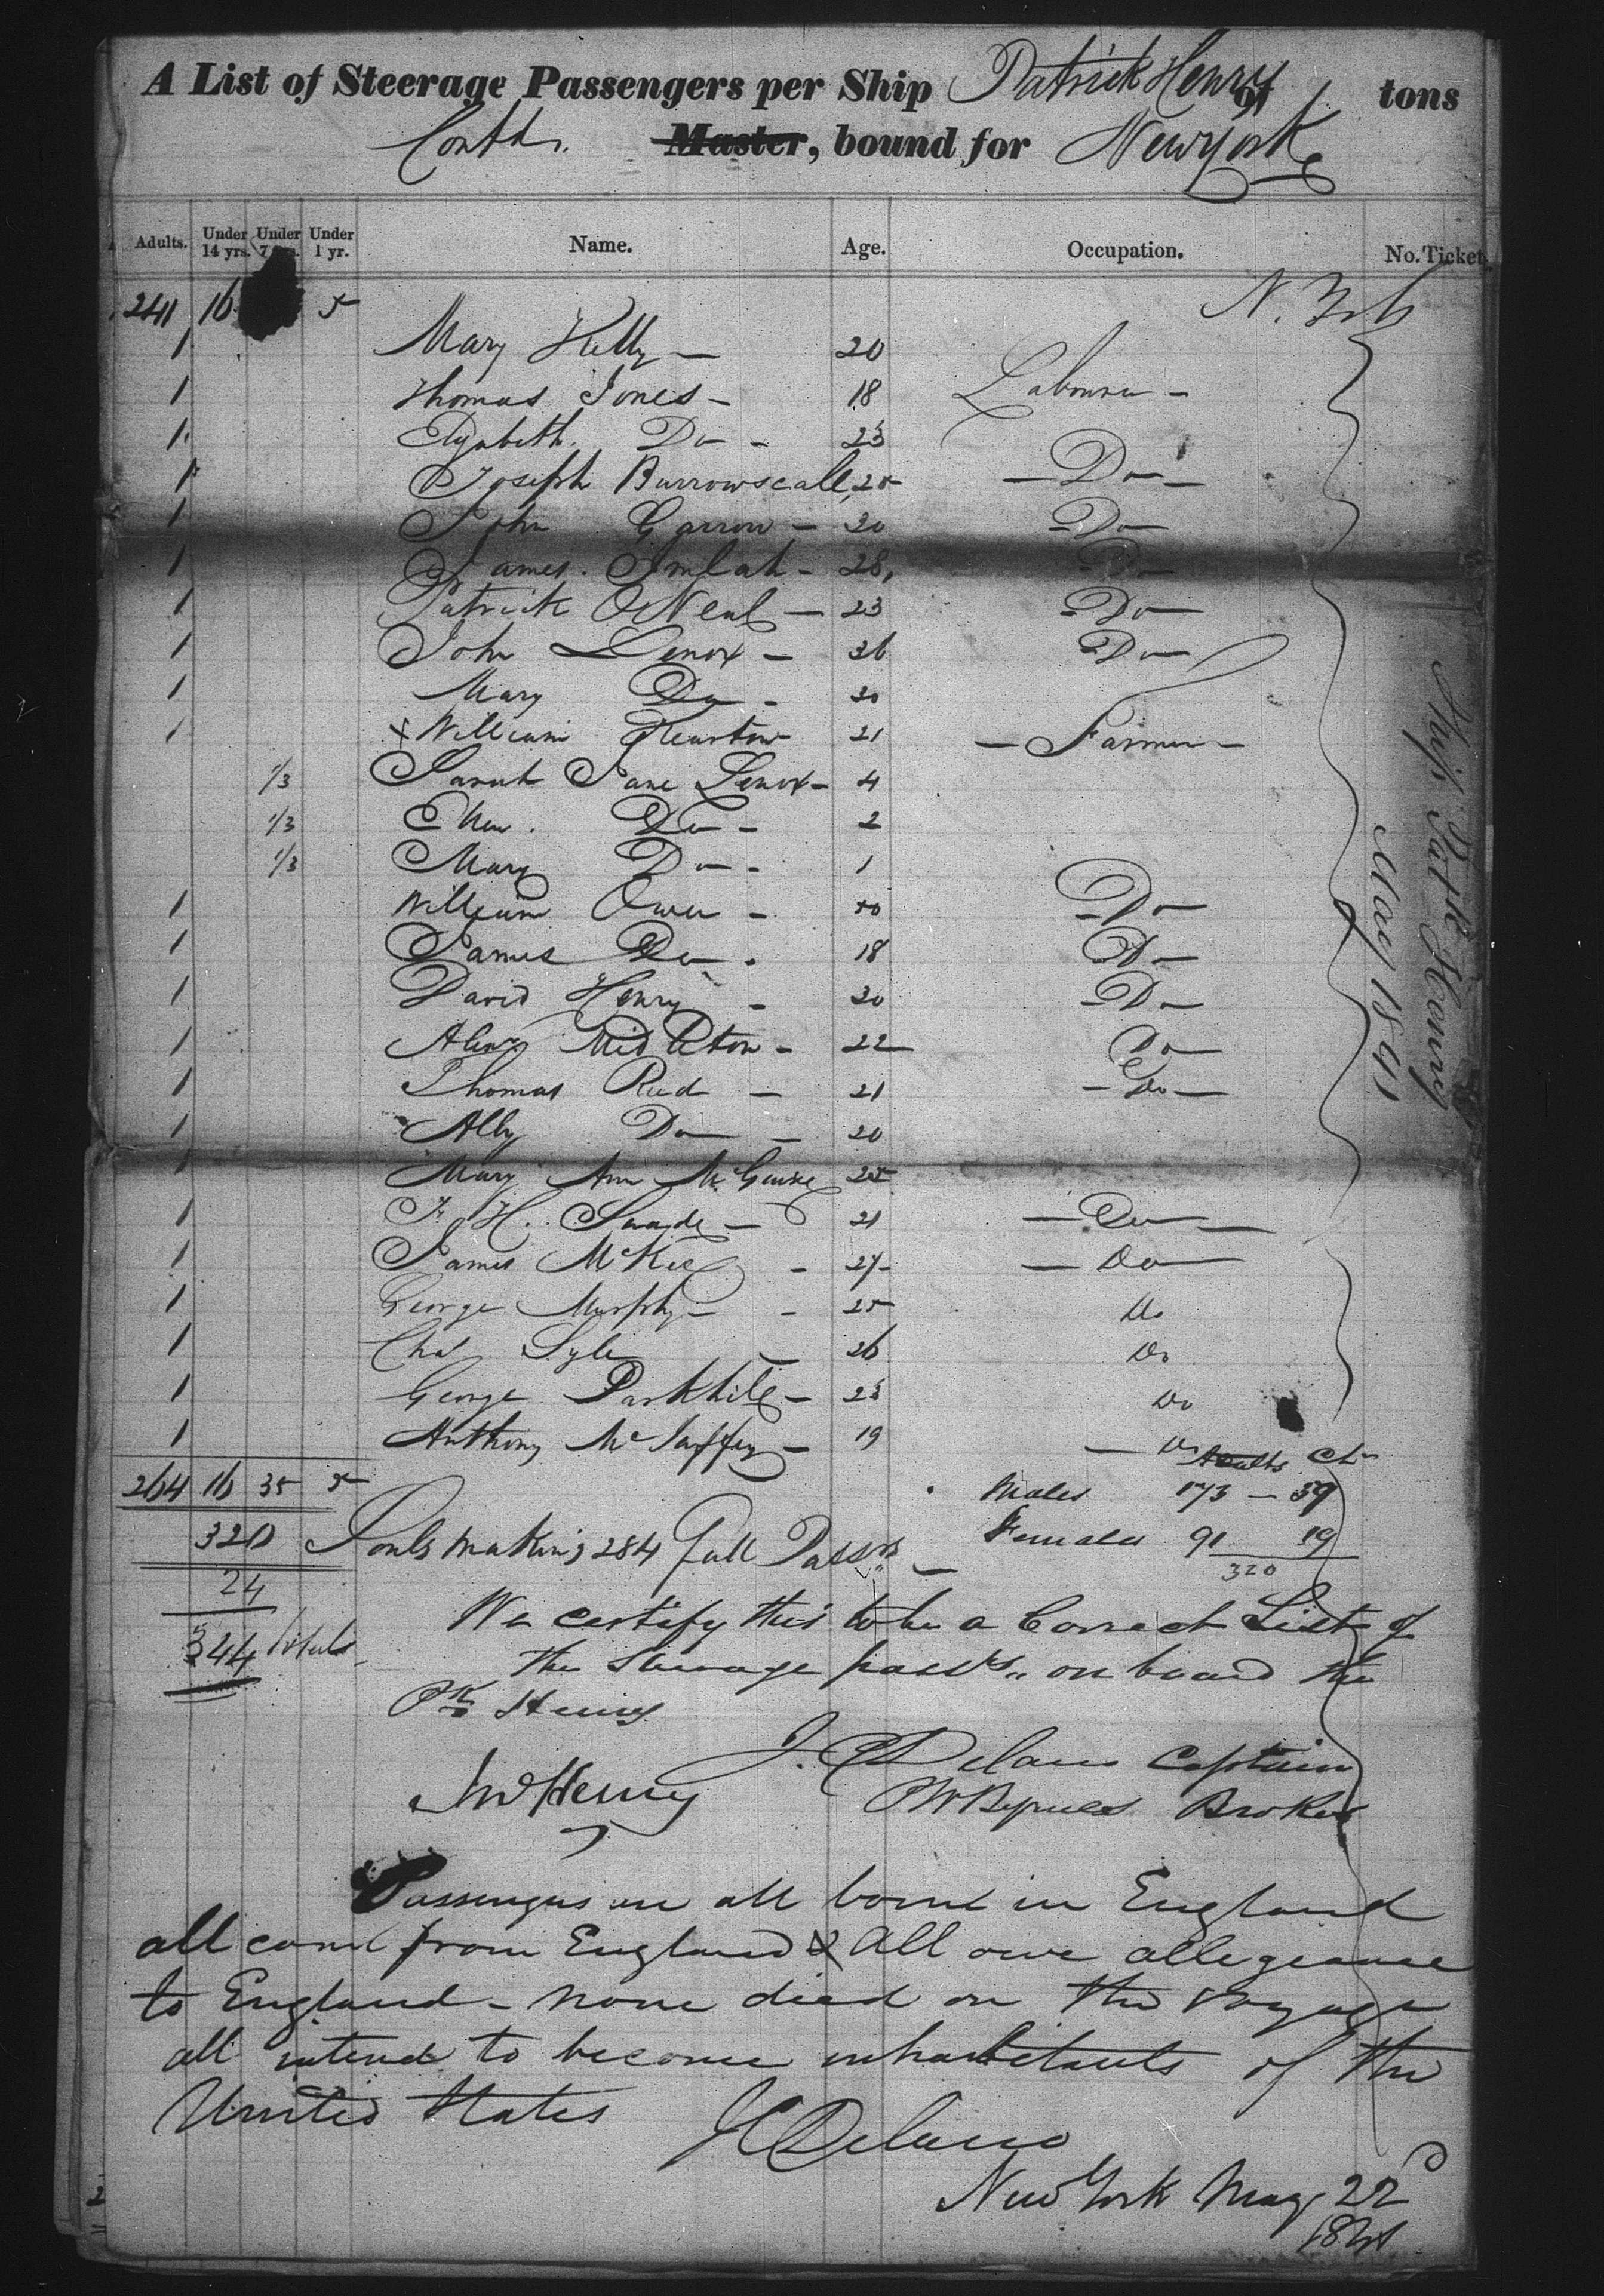 A List of Steerage Passengers per Ship Patrick Henry of tons
Contd. Master, bound for New York
Adults. Under 14 yrs. Under 7 yrs. Under 1 yr. Name. Age. Occupation. No. Ticket.
241 16 5 N. York
1 Mary Kelly — 20
1 Thomas Jones — 18 Labourer —
1 Elizabeth Do — 23
1 Joseph Burrowscale 25 — Do —
1 John Garrow — 30 — Do —
1 James Imlah — 28 Do
1 Patrick O'Neal — 23 — Do —
1 John Lenox — 36 — Do —
1 Mary Do — 30
1 x William — 21 — Farmer —
1/3 Sarah Jane Lenox — 4
1/3 Do — 2
1/3 Mary Do — 1
1 William Owen — 50 — Do —
1 James Do — 18 Do —
1 David Henry — 30 — Do —
1 Alexr Midleton — 22 Do —
1 Thomas Reed — 21 — Do —
1 Ally Do — 20
1 Mary Ann McGuire 25
1 H. — 21 — Do —
1 James McKee — 27 — Do —
1 George Murphy — 25 Do
1 Chas Lyle — 26 Do
1 George Parkhill — 23 Do
1 Anthony McJaffey — 19 — Do
Adults Ch
264 16 35 5 Males 173 — 37
320 Souls making 284 Full Passrs — Females 91 19
320
24
344 totals
We certify this to be a Correct List of
the Steerage passrs on board the
Pk Henry
J. C. Delano Captain
Jno Henry P W Byrnes Broker
Passengers are all born in England
all came from England & All owe allegeance
to England — none died on the voyage
all intend to become inhabitants of the
United States
J C Delano
New York May 22d
1841
Ship Patk Henry
May 1841